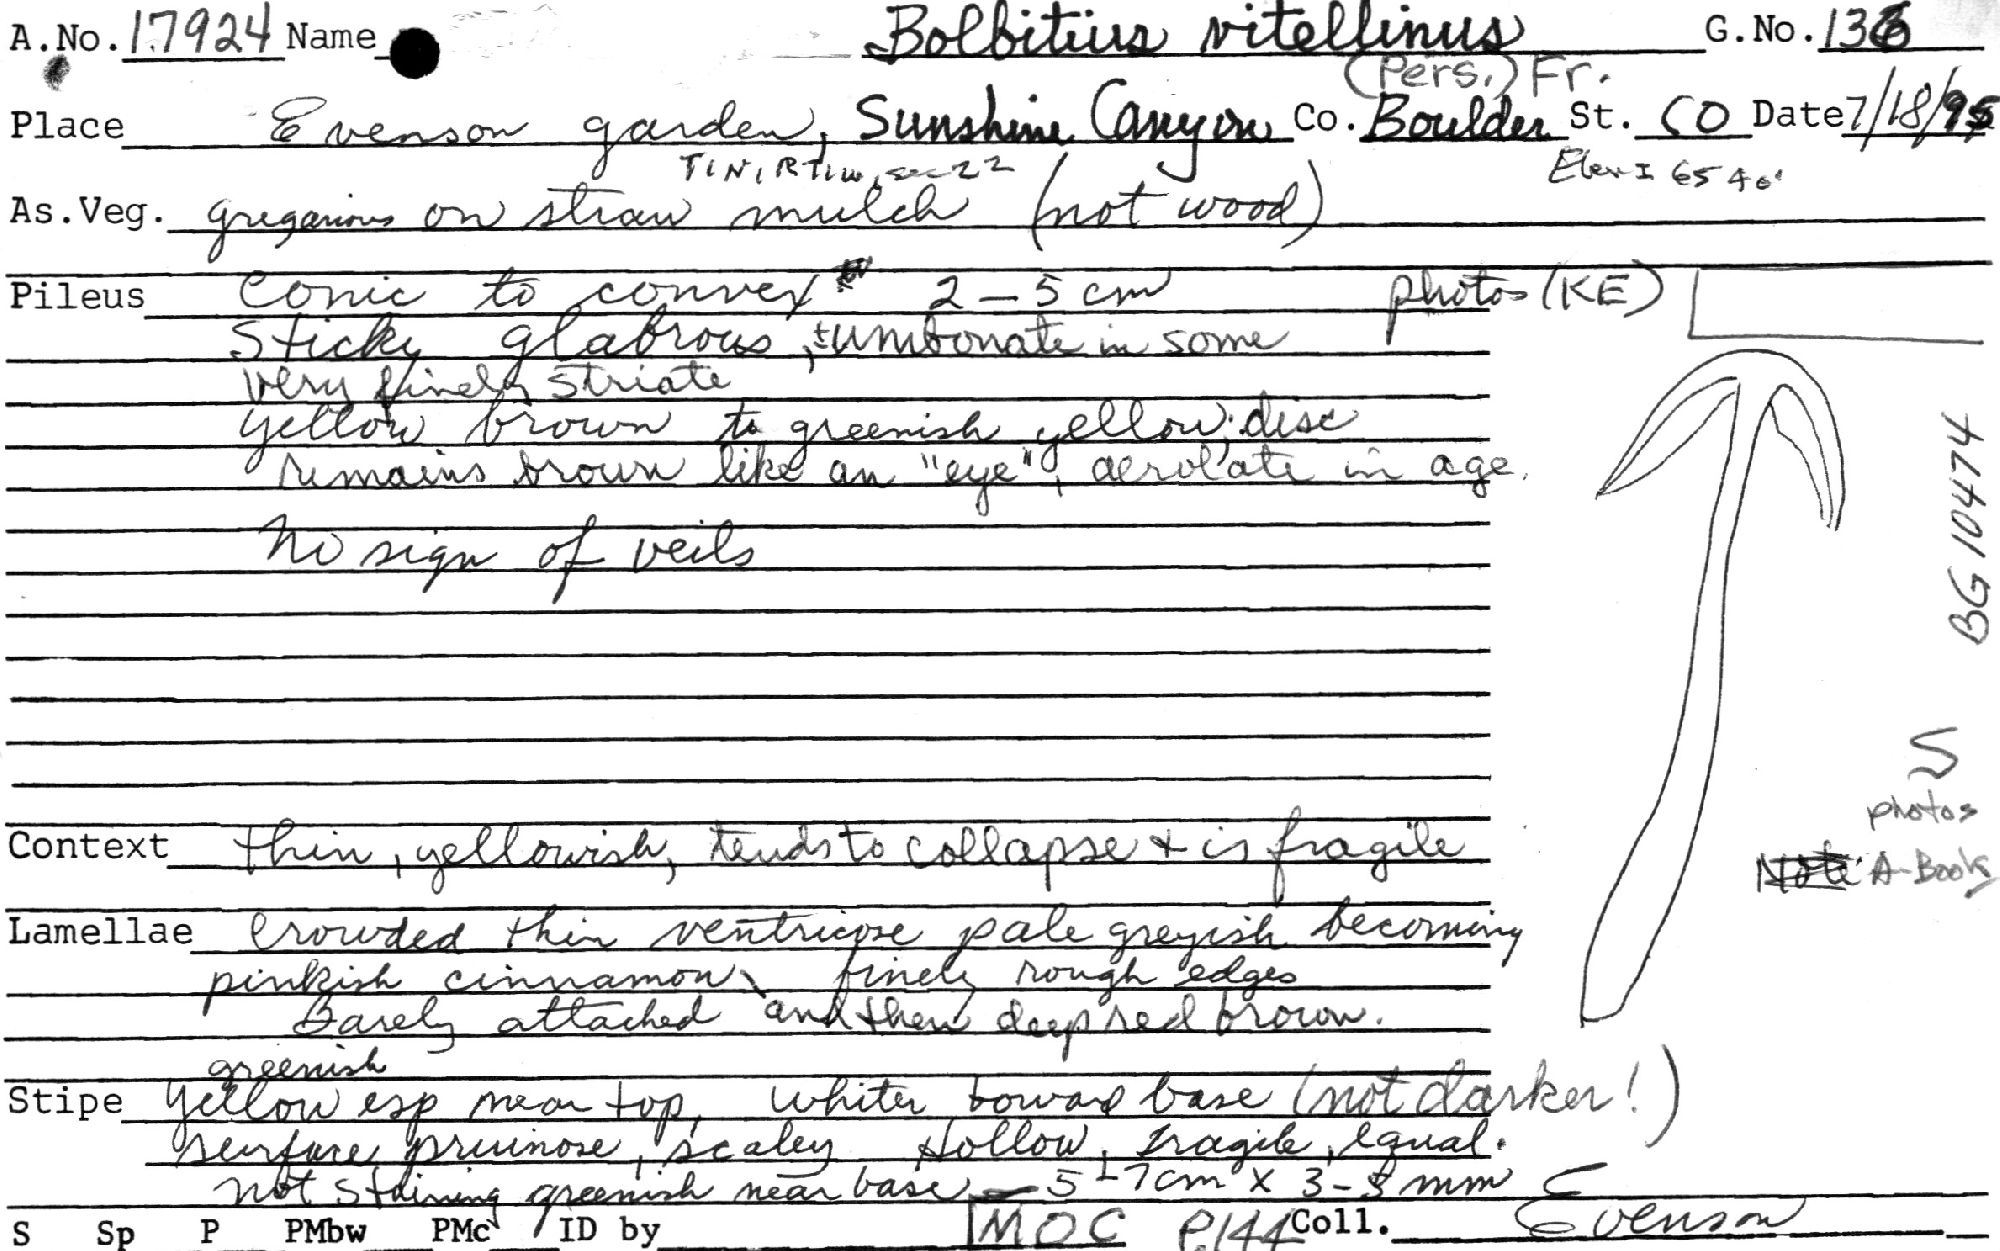 A.No. 17924 Name Bolbitius vitellinus G.No. 136
(Pers.) Fr.
Place Evenson garden, Sunshine Canyon Co. Boulder St. CO Date 7/18/95
T1N, R71W, sec 22 Elev. 6540'
As.Veg. gregarious on straw mulch (not wood)
Pileus Conic to convex 2 – 5 cm photos (KE)
Sticky glabrous, ±umbonate in some
very finely striate
yellow brown to greenish yellow; disc
remains brown like an "eye", aerolate in age.
No sign of veils
BG 10474
S
photos
Note A-Book
Context thin, yellowish, tends to collapse + is fragile
Lamellae Crowded thin ventricose pale greyish becoming
pinkish cinnamon finely rough edges
Barely attached and then deep red brown.
greenish
Stipe yellow esp near top, whiter toward base (not darker!)
surface pruinose, scaley Hollow, fragile, equal.
not staining greenish near base – 5-7cm x 3-5 mm
S Sp P PMbw PMc ID by MOC P.144 Coll. Evenson